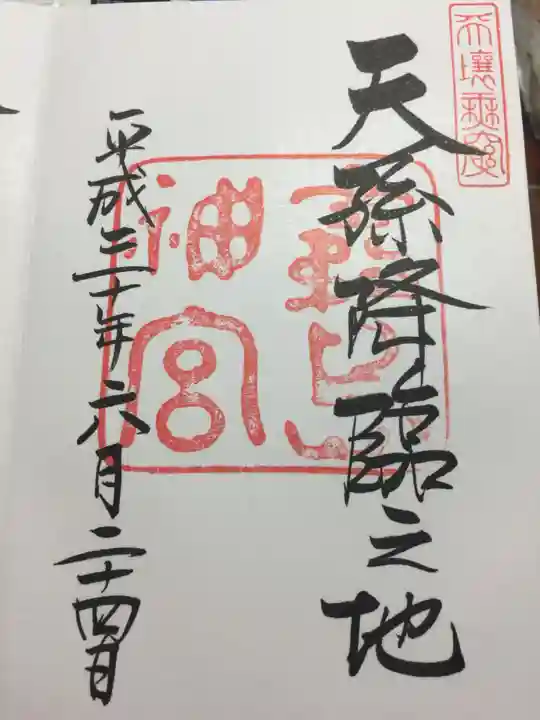 天壌無窮
天孫降臨之地
霧島神宮
平成三十年六月二十四日